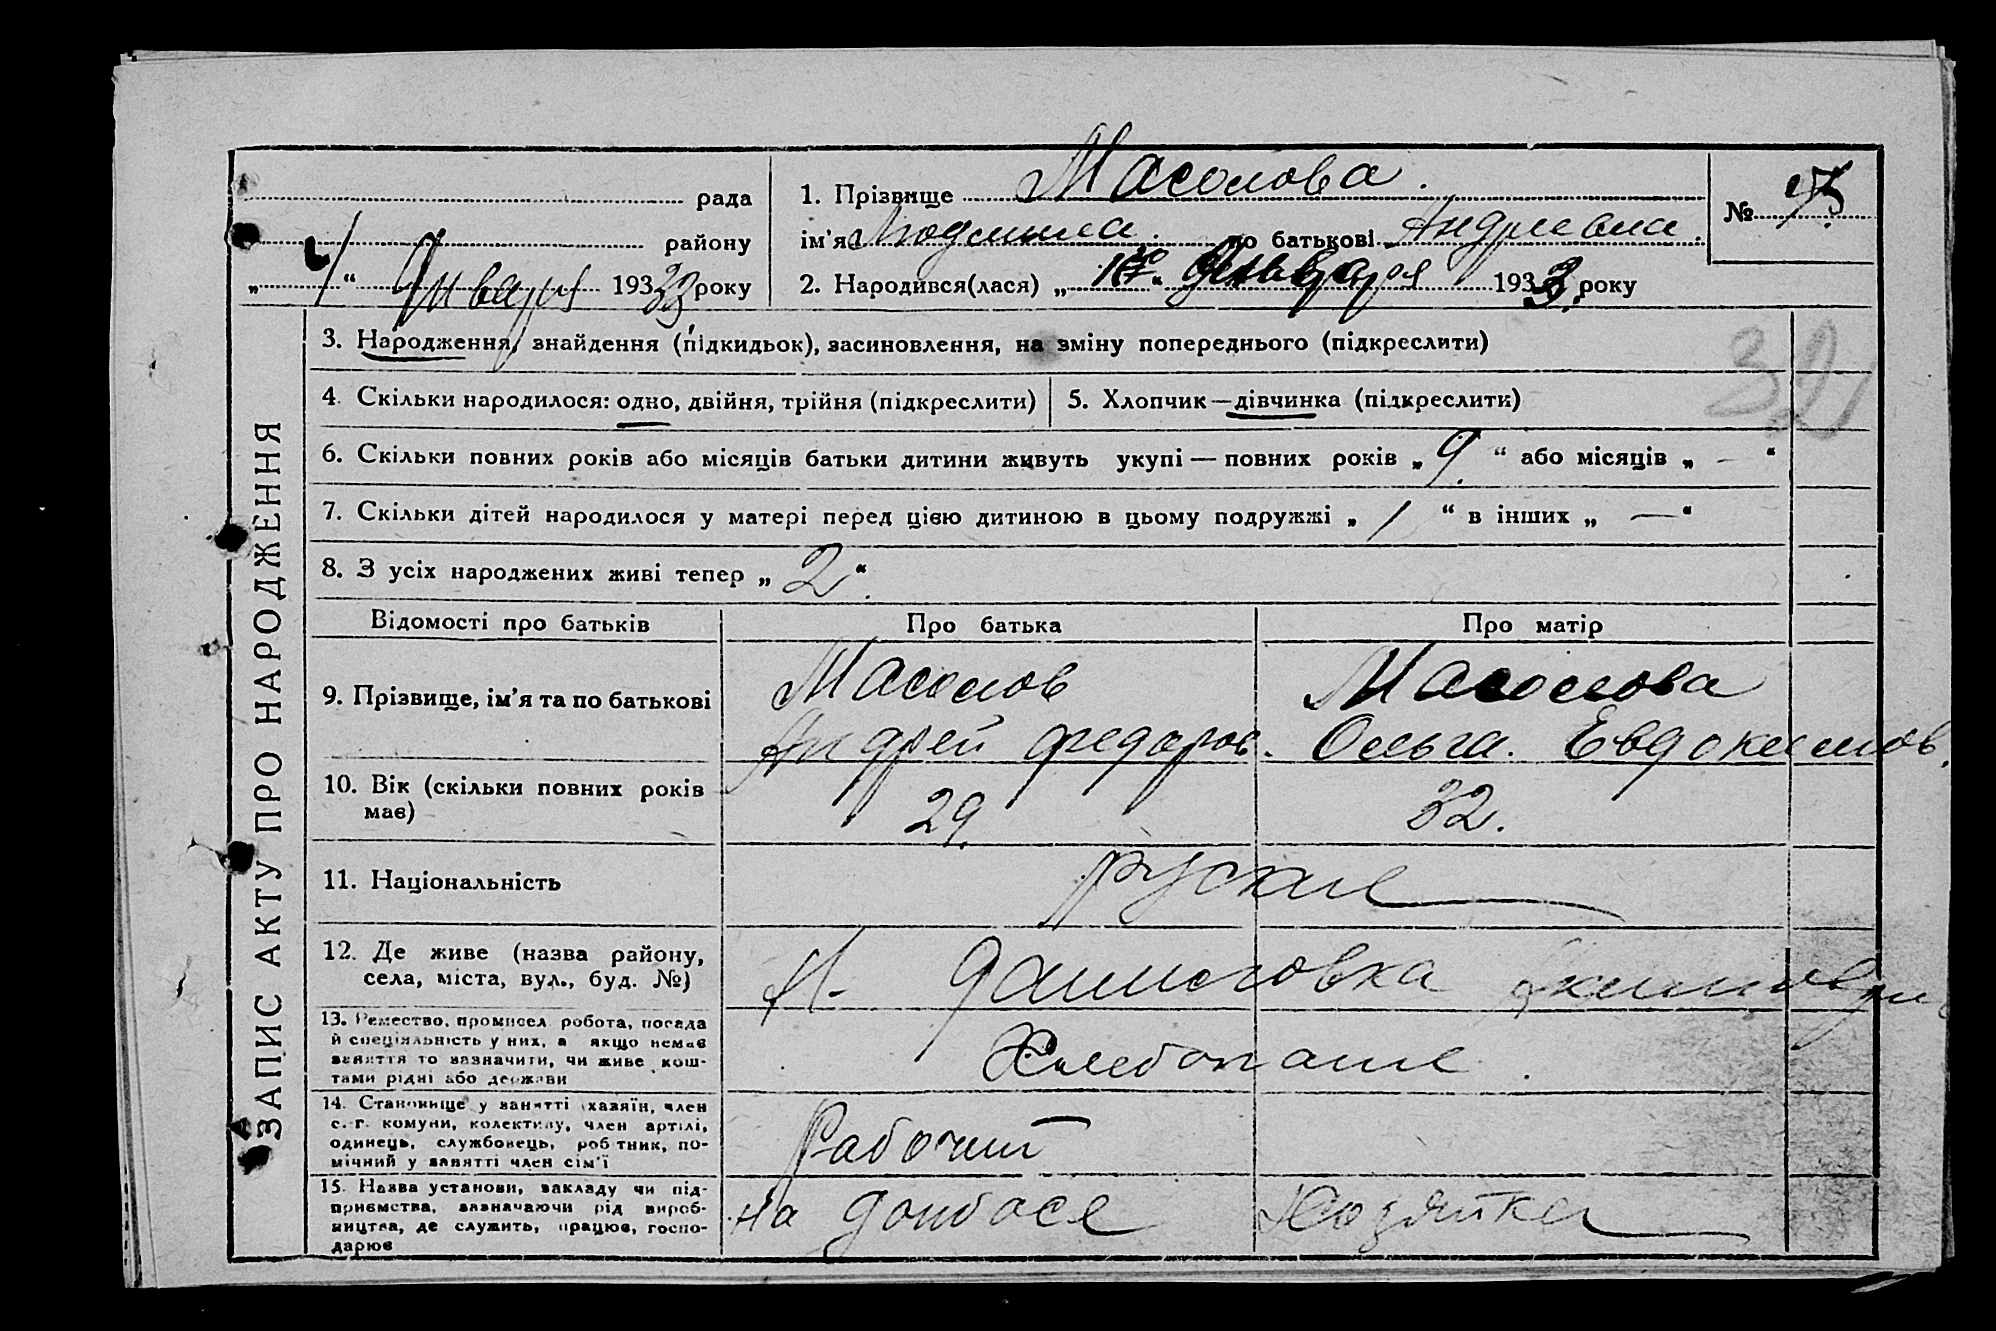 рада
району
„ 4 “ Января 1933 року
1. Прізвище Масолова.
ім'я Людмила. по батькові Андреевна.
2. Народився(лася) „ “ Января 1933. року
№
3. Народження, знайдення (підкидьок), засиновлення, на зміну попереднього (підкреслити)
32
4. Скільки народилося: одно, двійня, трійня (підкреслити)
5. Хлопчик—дівчинка (підкреслити)
6. Скільки повних років або місяців батьки дитини живуть укупі — повних років „ 9. “ або місяців „ — “
7. Скільки дітей народилося у матері перед цією дитиною в цьому подружжі „ 1 “ в інших „ — “
8. З усіх народжених живі тепер „ 2 “.
ЗАПИС АКТУ ПРО НАРОДЖЕННЯ
Відомості про батьків
Про батька
Про матір
9. Прізвище, ім'я та по батькові
Масолов
Андрей Федоров.
Масолова
Ольга. Евдокимов.
10. Вік (скільки повних років
має)
29.
32.
11. Національність
руские
12. Де живе (назва району,
села, міста, вул., буд. №)
Н. Даниловка
13. Ремество, промисел робота, посада
й спеціяльність у них, а якщо немає
заняття то зазначити, чи живе кош-
тами рідні або держави
Хлебопаше.
14. Становище у занятті (хазяїн, член
с.-г. комуни, колективу, член артілі,
одинець, службовець, робітник, по-
мічний у занятті член сім'ї
Рабочий
15. Назва установи, закладу чи під-
приємства, зазначаючи рід вироб-
ництва, де служить, працює, госпо-
дарює
на Донбасе
Хозяйка